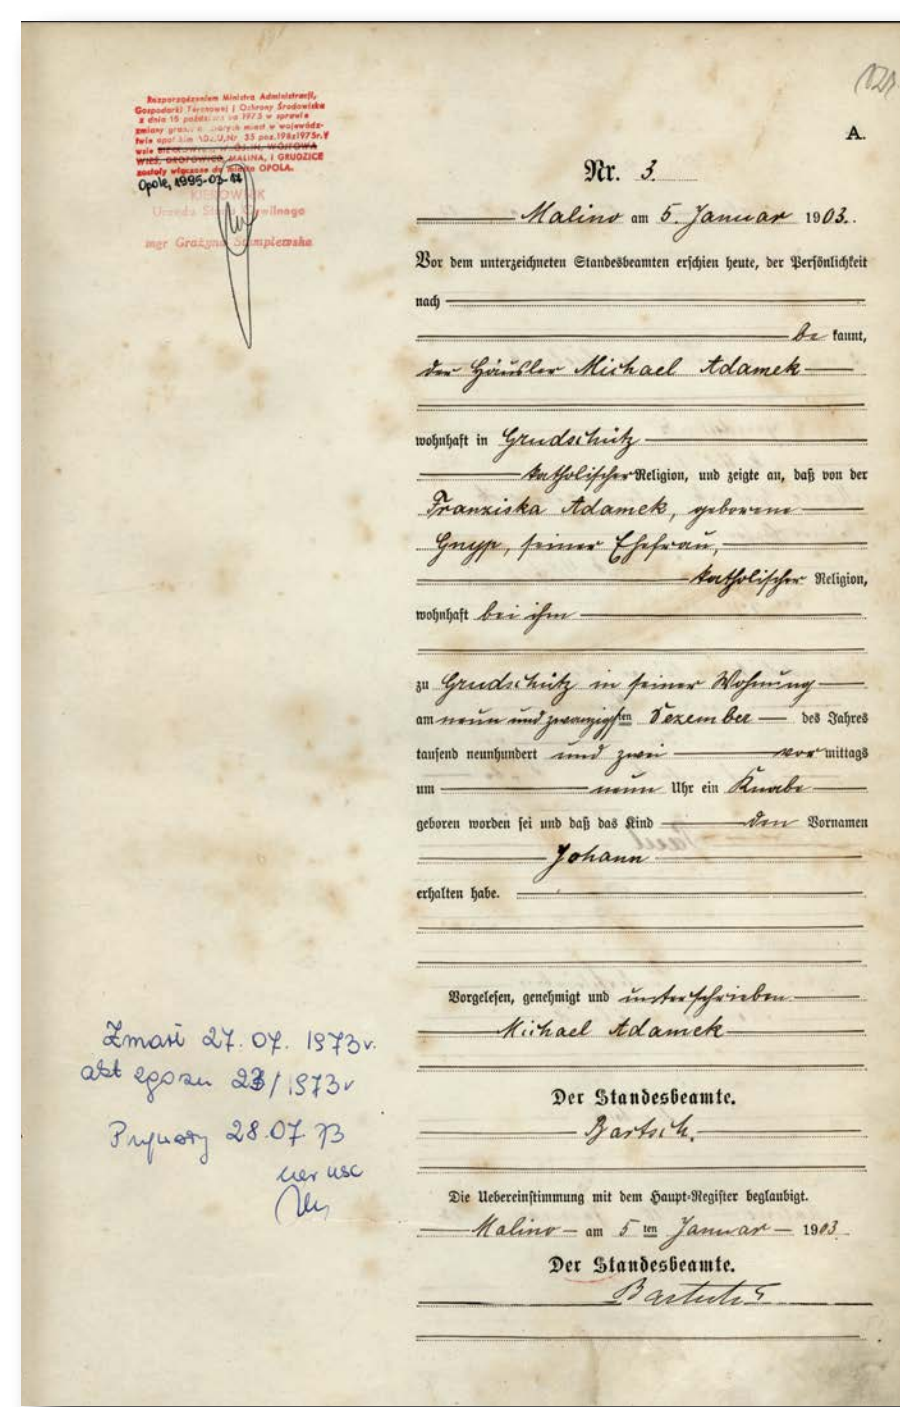 A.
Rozporządzeniem Ministra Administracji,
Gospodarki Terenowej i Ochrony Środowiska
z dnia 15 października 1975 w sprawie
zmiany granic miast w wojewódz-
twie opolskim Nr. 35 poz. 196z1975r.
wsie WÓJTOWA
WIEŚ, GROTOWICE, MALINA, i GRUDZICE
zostały włączone do miasta OPOLA.
Opole, 1995-03-
KIEROWNIK
Urzędu Stanu Cywilnego
mgr Grażyna
Nr. 3.
Malino am 5. Januar 1903.
Vor dem unterzeichneten Standesbeamten erschien heute, der Persönlichkeit
nach
be kannt,
der Häusler Michael Adamek
wohnhaft in Grudschütz
katholischer Religion, und zeigte an, daß von der
Franziska Adamek, geborene
Gnyp, seiner Ehefrau,
katholischer Religion,
wohnhaft bei ihm
zu Grudschütz in seiner Wohnung
am neun und zwanzigsten Dezember des Jahres
tausend neunhundert und zwei vor mittags
um neun Uhr ein Knabe
geboren worden sei und daß das Kind den Vornamen
Johann
erhalten habe.
Vorgelesen, genehmigt und unterschrieben
Michael Adamek
Der Standesbeamte.
Bartsch.
Die Uebereinstimmung mit dem Haupt-Register beglaubigt.
Malino am 5ten Januar 1903
Der Standesbeamte.
Bartsch
Zmarł 27.07.1973r.
akt zgonu 23/1973r
28.07.73
usc